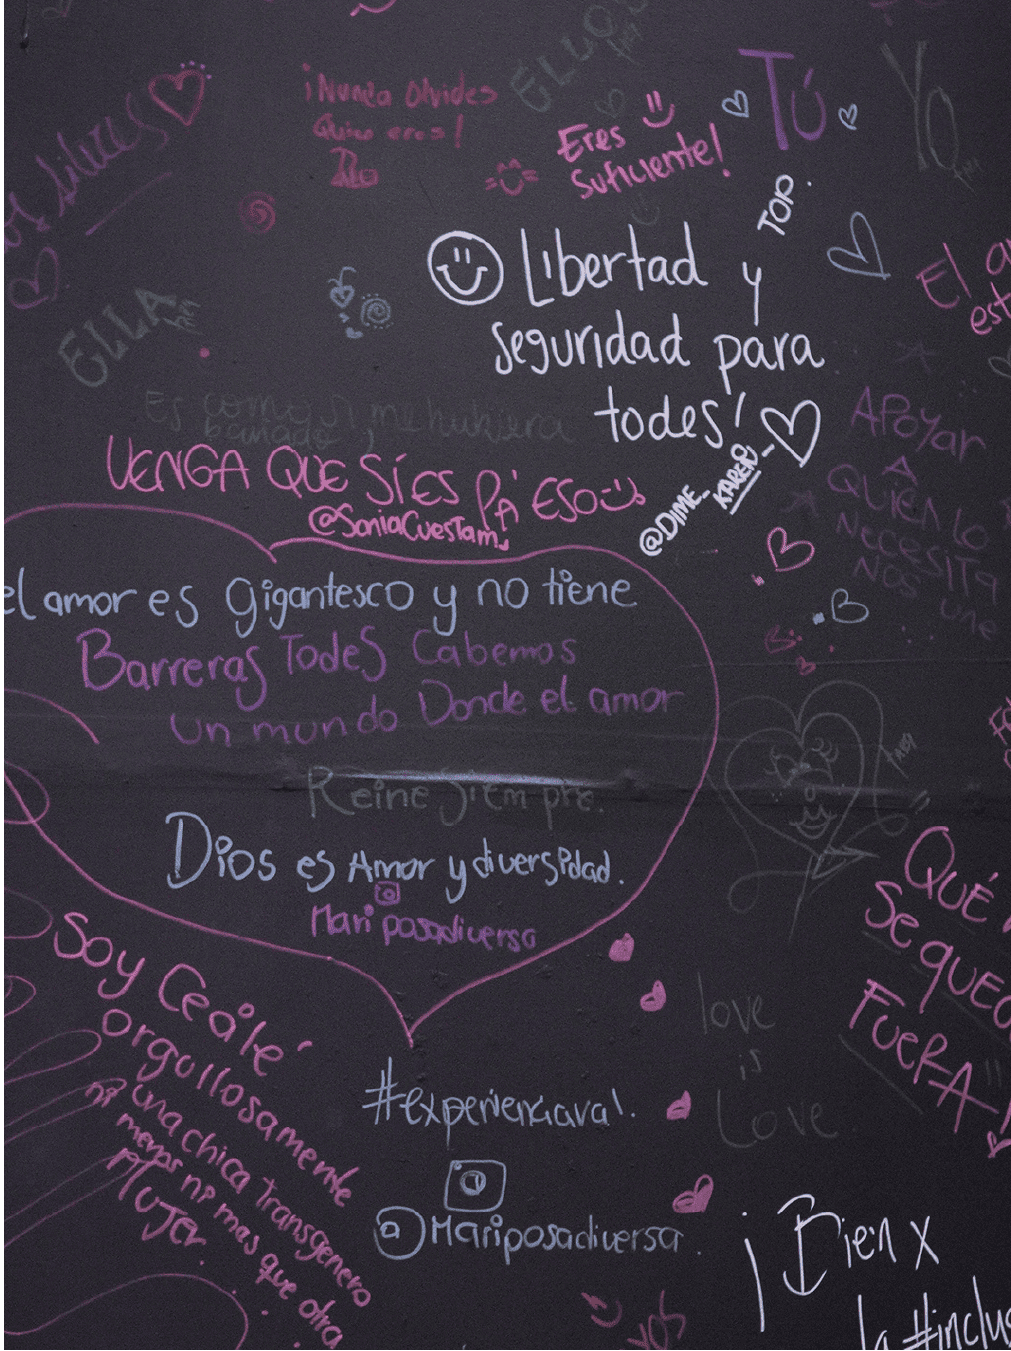 ELLO
¡Nunca Olvides
Quien eres!
Eres
Suficiente!
TÚ
Yo
TOP.
Libertad y
seguridad para
todes!
@DIME_KAREN_
ELLA
El a
est
Es como si me hubiera
bañado
VENGA QUE SÍ ES PA' ESO
@SoniaCuestam
APOYAR
A
QUIEN LO
NECESITA
NOS UNE
el amor es gigantesco y no tiene
Barreras Todes Cabemos
un mundo Donde el amor
Reine Siempre.
Dios es Amor y diversidad.
Mariposadiversa
QUÉ
Se QUED
FUERA!
Soy Ceálé
orgullosamente
una chica transgenero
ni menos ni mas que otra
Mujer.
love
is
Love.
#experienciaval.
@Mariposadiversa.
¡Bien x
la #inclus